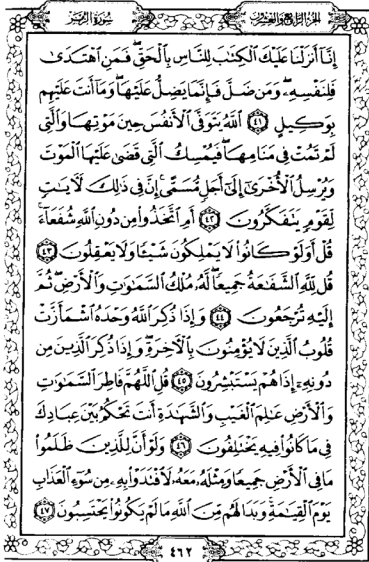 الجزء الرابع والعشرون سورة الزمر
إِنَّا أَنزَلْنَا عَلَيْكَ الْكِتَٰبَ لِلنَّاسِ بِالْحَقِّ ۖ فَمَنِ اهْتَدَىٰ
فَلِنَفْسِهِۦ ۖ وَمَن ضَلَّ فَإِنَّمَا يَضِلُّ عَلَيْهَا ۖ وَمَا أَنتَ عَلَيْهِم
بِوَكِيلٍ ٤١ اللَّهُ يَتَوَفَّى الْأَنفُسَ حِينَ مَوْتِهَا وَالَّتِي
لَمْ تَمُتْ فِي مَنَامِهَا ۖ فَيُمْسِكُ الَّتِي قَضَىٰ عَلَيْهَا الْمَوْتَ
وَيُرْسِلُ الْأُخْرَىٰ إِلَىٰ أَجَلٍ مُّسَمًّى ۚ إِنَّ فِي ذَٰلِكَ لَآيَٰتٍ
لِّقَوْمٍ يَتَفَكَّرُونَ ٤٢ أَمِ اتَّخَذُوا مِن دُونِ اللَّهِ شُفَعَاءَ ۚ
قُلْ أَوَلَوْ كَانُوا لَا يَمْلِكُونَ شَيْئًا وَلَا يَعْقِلُونَ ٤٣
قُل لِّلَّهِ الشَّفَٰعَةُ جَمِيعًا ۖ لَّهُۥ مُلْكُ السَّمَٰوَٰتِ وَالْأَرْضِ ۖ ثُمَّ
إِلَيْهِ تُرْجَعُونَ ٤٤ وَإِذَا ذُكِرَ اللَّهُ وَحْدَهُ اشْمَأَزَّتْ
قُلُوبُ الَّذِينَ لَا يُؤْمِنُونَ بِالْآخِرَةِ ۖ وَإِذَا ذُكِرَ الَّذِينَ مِن
دُونِهِۦ إِذَا هُمْ يَسْتَبْشِرُونَ ٤٥ قُلِ اللَّهُمَّ فَاطِرَ السَّمَٰوَٰتِ
وَالْأَرْضِ عَٰلِمَ الْغَيْبِ وَالشَّهَٰدَةِ أَنتَ تَحْكُمُ بَيْنَ عِبَادِكَ
فِي مَا كَانُوا فِيهِ يَخْتَلِفُونَ ٤٦ وَلَوْ أَنَّ لِلَّذِينَ ظَلَمُوا
مَا فِي الْأَرْضِ جَمِيعًا وَمِثْلَهُۥ مَعَهُۥ لَافْتَدَوْا بِهِۦ مِن سُوءِ الْعَذَابِ
يَوْمَ الْقِيَٰمَةِ ۚ وَبَدَا لَهُم مِّنَ اللَّهِ مَا لَمْ يَكُونُوا يَحْتَسِبُونَ ٤٧
٤٦٢